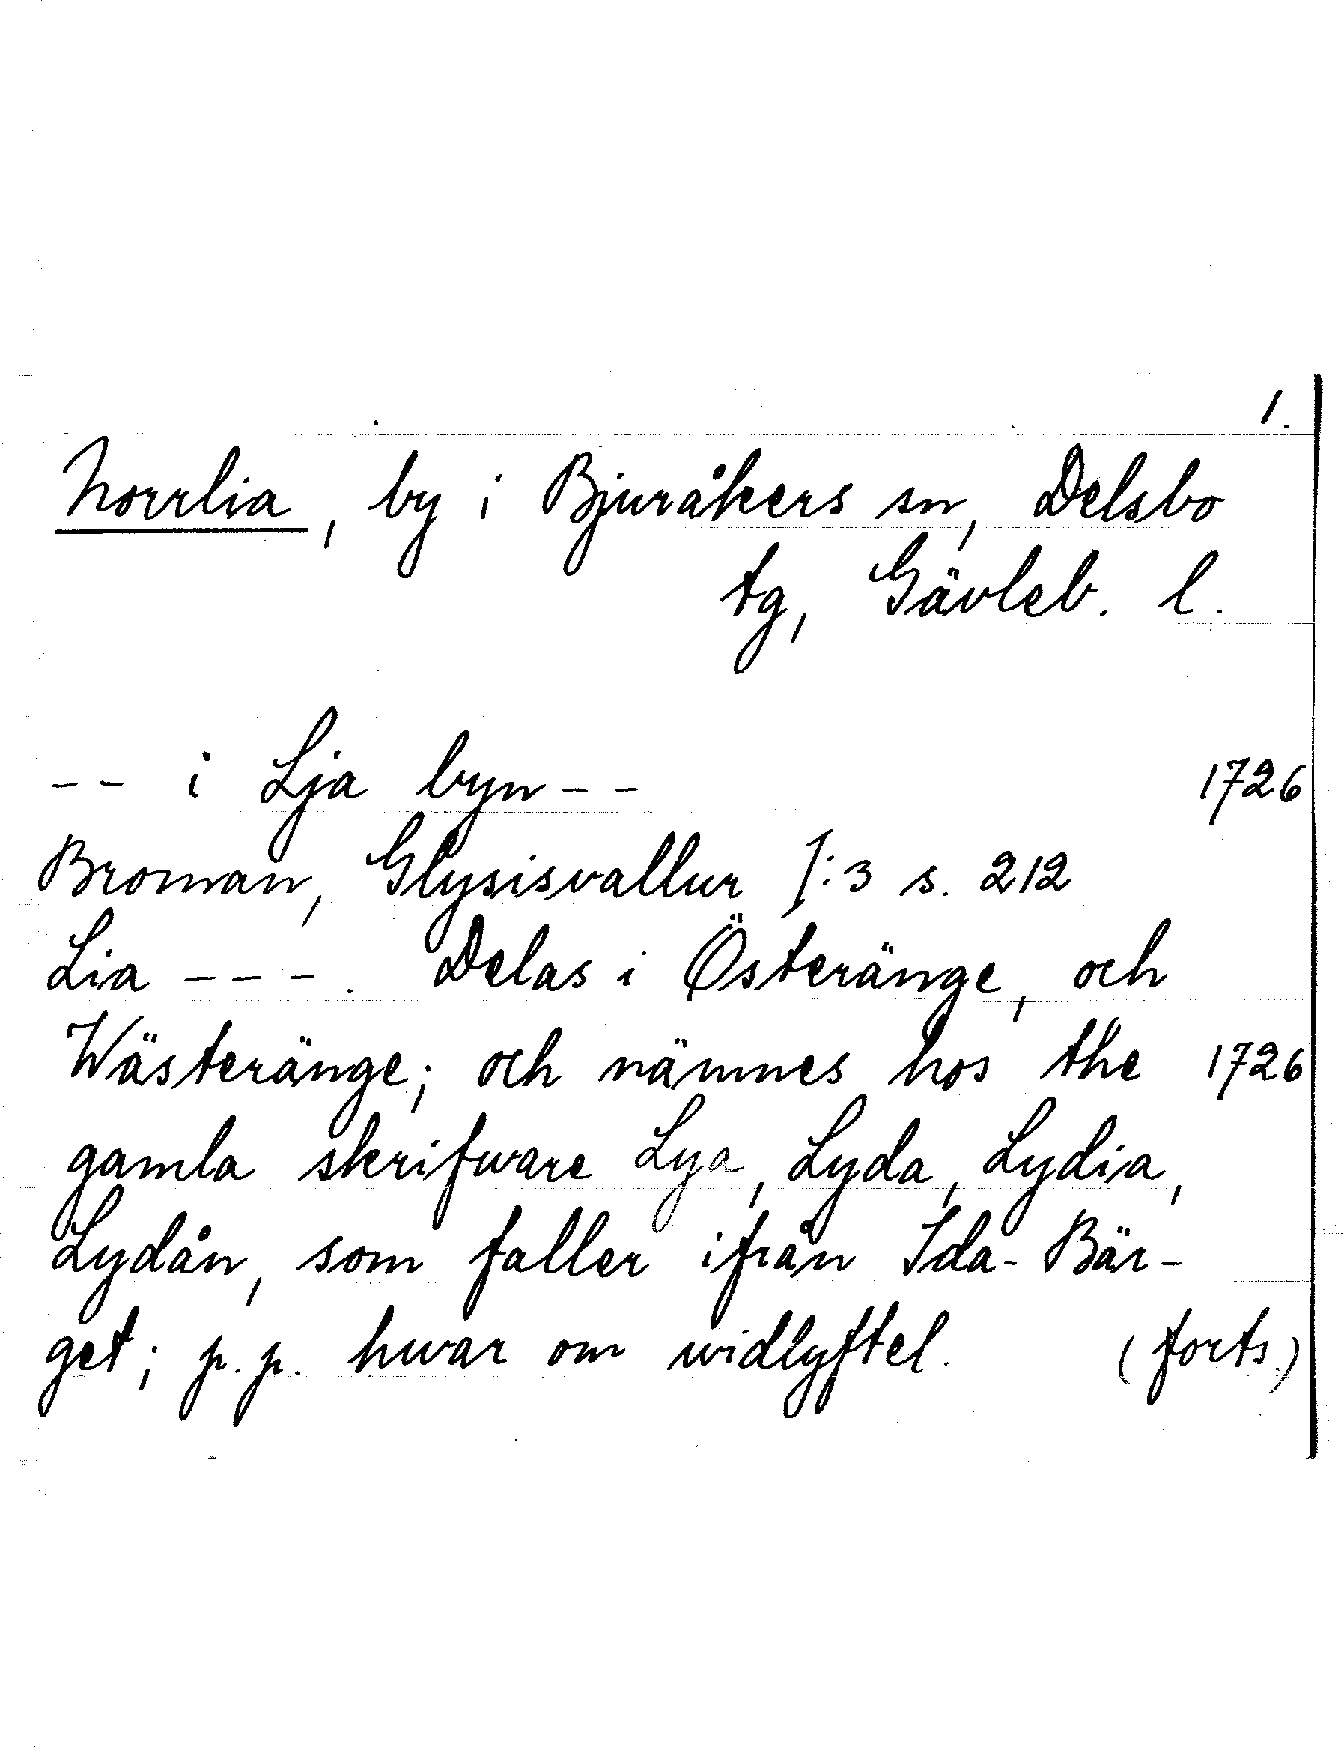 1.
Norrlia, by i Bjuråkers sn, Delsbo
tg, Gävleb. l.
-- i Lja byn -- 1726
Broman, Glysisvallur I:3 s. 212
Lia ---. Delas i Österänge, och
Wästeränge; och nämnes hos the 1726
gamla skrifware Lya, Lyda, Lydia,
Lydån, som faller ifrån Ida-Bär-
get; p.p. hwar om widlyftel. (forts.)